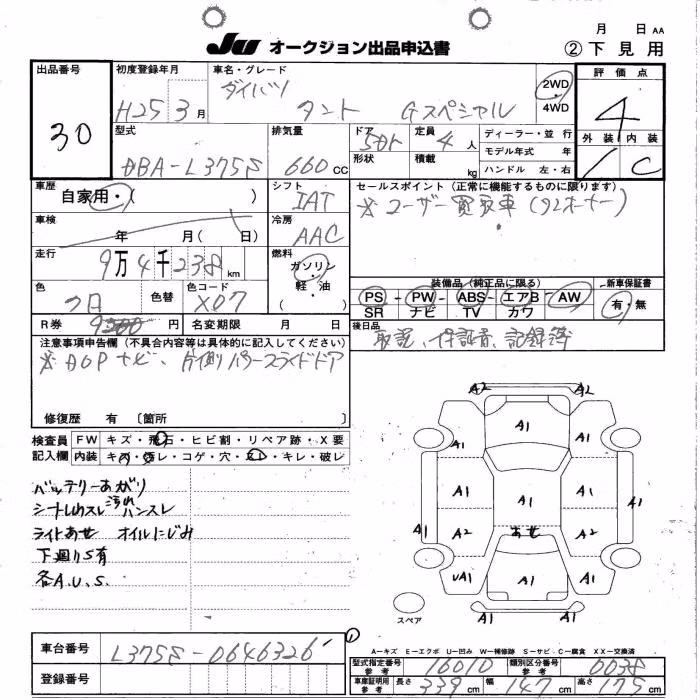 月 日 AA
JU オークション出品申込書 ②下見用
出品番号 初度登録年月 車名・グレード 評価点
30 H25 3月 ダイハツ タント Gスペシャル 2WD・4WD 4
型式 排気量 ドア 定員 ディーラー・並行 外装 内装
DBA-L375S 660CC 5Dr 4人 モデル年式 年 C
形状 積載 kg ハンドル 左・右
車歴 シフト セールスポイント(正常に機能するものに限ります)
自家用・( ) IAT ※ユーザー買取車(
車検 冷房
年 月( 日) AAC
走行 燃料
9万4千238km ガソリン・軽・油 ( )
装備品(純正品に限る) 新車保証書
色 色替 色コード PS-PW-ABS-エアB-AW 有・無
クロ X07 SR ナビ TV カワ
R券 円 名変期限 月 日 後日品
取説、保証書、記録簿
注意事項申告欄(不具合内容等は具体的に記入してください)
※AOPナビ、片側パワースライドドア
修復歴 有 〔箇所 〕
検査員 FW キズ・飛石・ヒビ割・リペア跡・X要
記入欄 内装 キズ・汚レ・コゲ・穴・スレ・キレ・破レ
バッテリーあがり
シートしわスレ汚れ ハンスレ
ライトあせ オイルにじみ
下廻りS有
各A.U.S.
A2 A2
A1
A1 A1
A1 A1 A1
A1 A1
A2 あせ A2
UA1 A1 A1
A1 A1
スペア
A-キズ E-エクボ U-凹み W-補修跡 S-サビ C-腐食 XX-交換済
車台番号 L375S-0646326
登録番号
型式指定番号 参考 16010 類別区分番号 参考 0038
車庫証明用 参考 長さ 339cm 幅 147cm 高さ 175cm